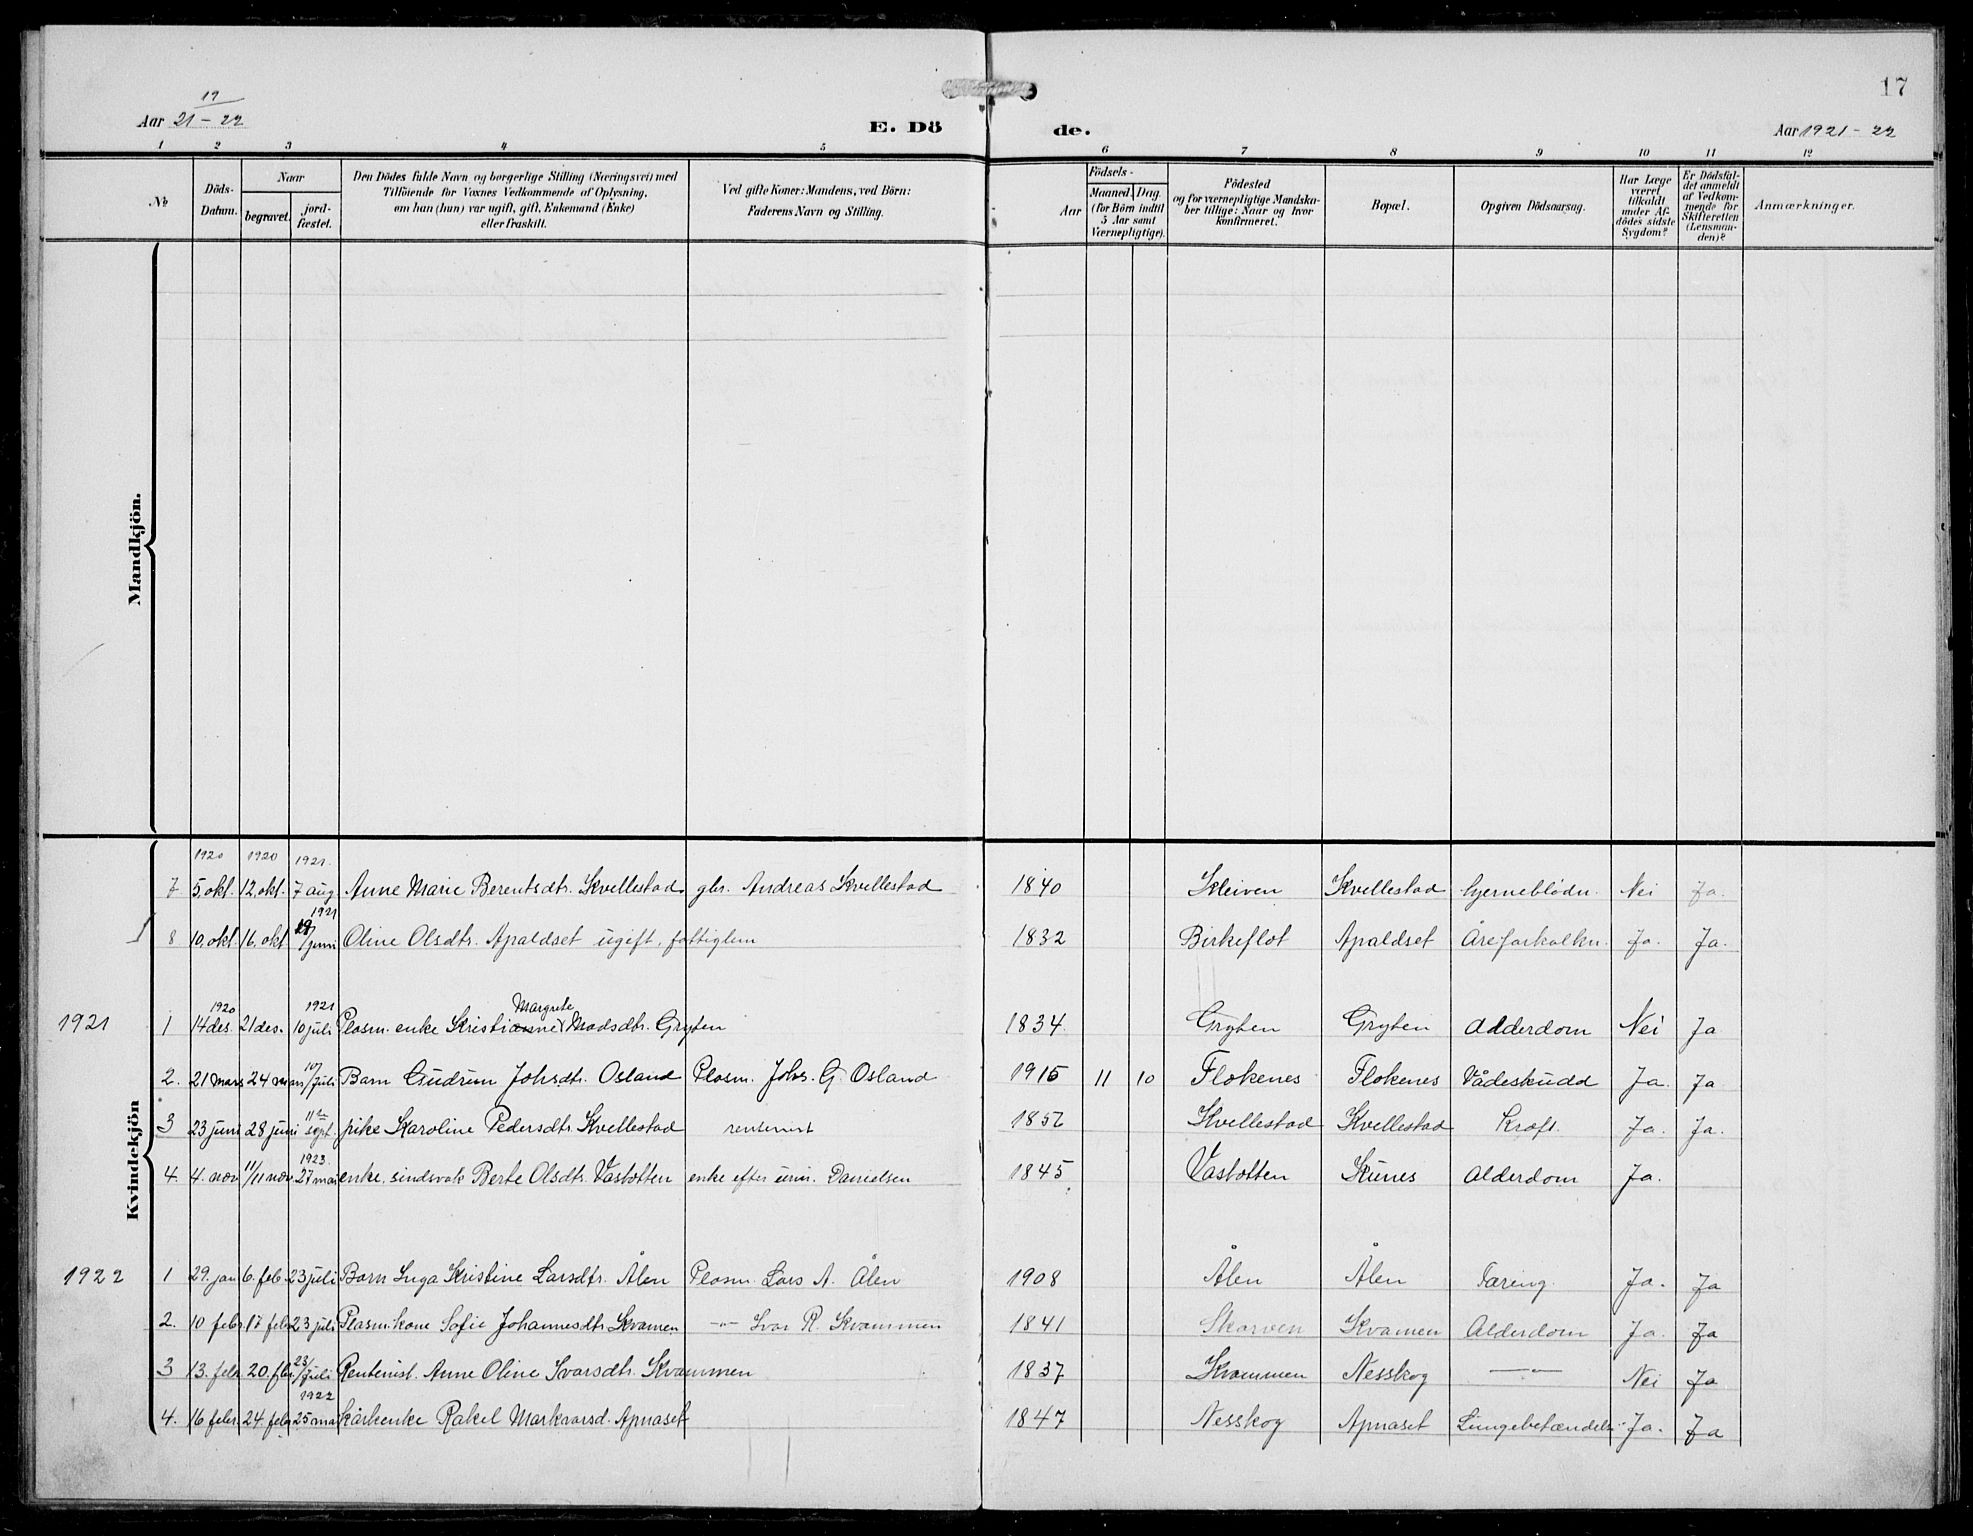 17
19
Aar 21 - 22
E. Dö
de.
Aar 1921 - 22
1 2 3 4 5 6 7 8 9 10 11 12
№
Döds-Datum.
Naar
begravet.
jord-fæstet.
Den Dödes fulde Navn og borgerlige Stilling (Næringsvei) med
Tilföiende for Voxnes Vedkommende af Oplysning,
om han (hun) var ugift, gift, Enkemand (Enke)
eller fraskilt.
Ved gifte Koner: Mandens, ved Börn:
Faderens Navn og Stilling.
Födsels-
Aar
Maaned. Dag.
(for Börn indtil
5 Aar samt
Værnepligtige).
Födested
og for værnepligtige Mandska-
ber tillige: Naar og hvor
konfirmeret.
Bopæl.
Opgiven Dödsaarsag.
Har Læge
været
tilkaldt
under Af-
dödes sidste
Sygdom?
Er Dödsfal-
det anmeldt
af Vedkom-
mende for
Skifteretten
(Lensman-
den)?
Anmærkninger.
Mandkjön.
Kvindekjön
1920 1920 1921.
7 5. okt. 12. okt. 7 aug. Anne Marie Berentsdtr. Kvellestad gbr. Andreas Kvellestad 1840 Kleiven Kvellestad hjerneblødn. Nei Ja.
1921
8 10. okt. 16. okt. /juni Oline Olsdtr. Apaldset ugift, fattiglem 1832 Birkeflot Apaldset Åreforkalkn. Ja. Ja.
1920 1921 Margrete
1921 1 14 des. 21 des. 10 juli Plasm. enke Madsdtr. Gryten 1834. Gryten Gryten Alderdom Nei Ja
2. 21 mars 24 mars 10/juli Barn Gudrun Johsdtr. Osland Plasm. Johs. G. Osland 1915 11 10 Flokenes Flokenes Vådeskudd Ja. Ja
3 23 juni 28 juni 11 sept. pike Karoline Pedersdtr. Kvellestad rentenist 1852 Kvellestad Kvellestad Kræft. Ja. Ja.
1923.
4. 4. nov. 11/11 nov. 27 mai enke, sindsvak Berte Olsdtr. Vasbotten enke efter Danielsen 1845 Vasbotten Skunes Alderdom Ja.
1922 1 29. jan 6. feb. 23 juli Barn Inga Kristine Larsdtr. Ålen Plasm. Lars A. Ålen 1908 Ålen Ålen Tæring. Ja. Ja
2. 10 febr. 17 febr. 23 juli Plasm. kone Sofie Johannesdtr. Kvamen -"- Ivar R. Kvammen 1841 Skorven Kvamen Alderdom Ja. Ja
3 13. febr. 20. fbr. 23/juli Rentenist. Anne Oline Ivarsdtr. Kvammen 1837 Kvammen Nesskog -"- Nei Ja
1922
4. 16 febr. 24. febr. 25 mai kårkenke Rakel Markvarsd. Apnaset 1847 Nesskog Apnaset Lungebetændelse Ja. Ja